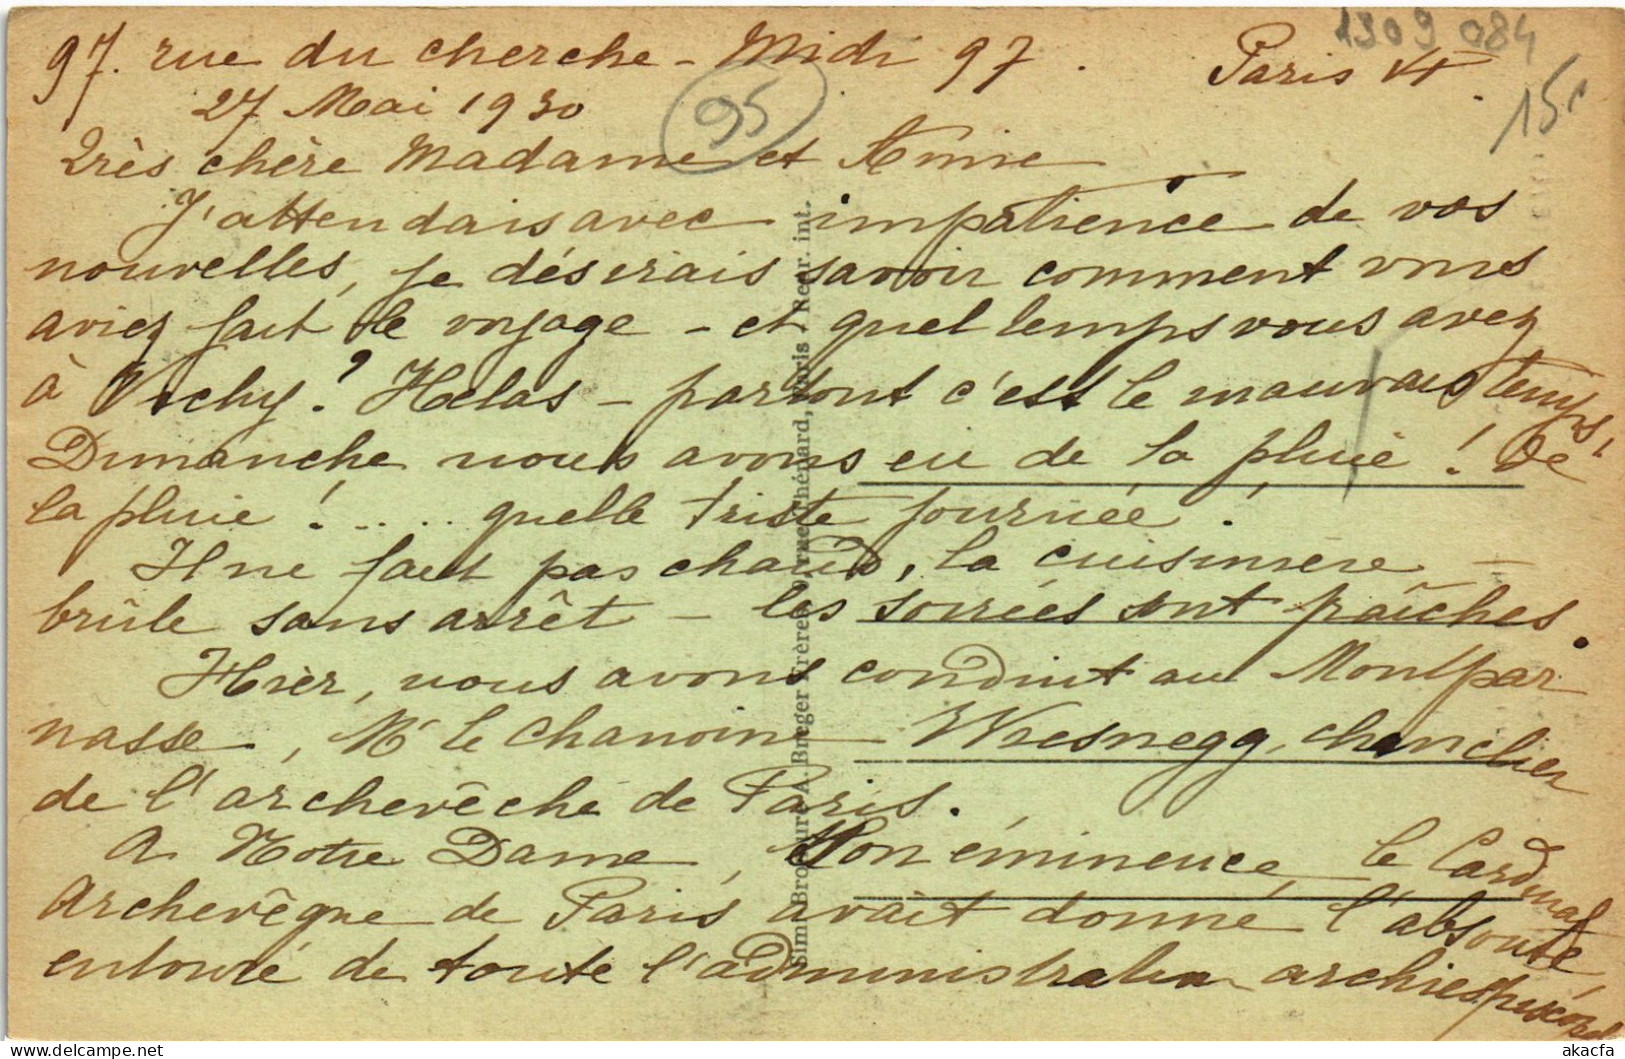 1309 084
97. rue du cherche-Midi 97. Paris VI
15
27 Mai 1930
95
Très chère Madame et Amie
J'attendais avec impatience de vos
nouvelles, je désirais savoir comment vous
aviez fait le voyage - et quel temps vous avez
à Vichy? Helas - partout c'est le mauvais temps,
Dimanche nous avons eu de la pluie! De
la pluie! ..... quelle triste journée!
Il ne fait pas chaud, la cuisiniere -
brûle sans arrêt - les soirées sont fraîches.
Hier, nous avons conduit au Montpar
nasse, Mr le Chanoine Wiesnegg, chancelier
de l'archevêché de Paris.
A Notre Dame, Son éminence, le Cardinal
Archevêque de Paris avait donné l'absoute
entouré de toute l'administration archiépiscopale
Simi-Bromure A. Breger Frères, 9, rue Thénard, Paris - Repr. int.
akacfa